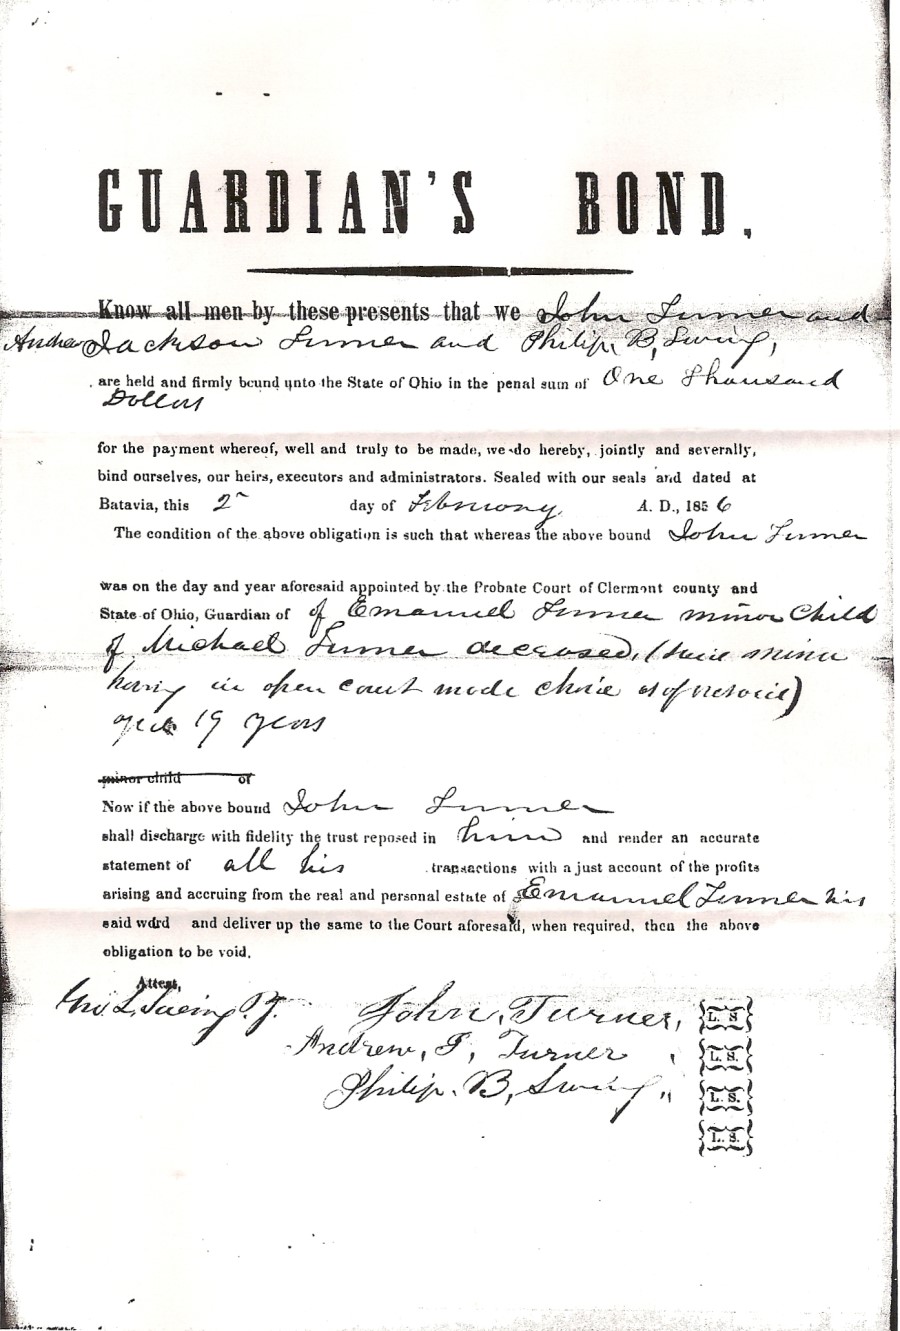 GUARDIAN'S BOND.
Know all men by these presents that we John Turner and
Andrew Jackson Turner and Philip, B, Swing,
are held and firmly bound unto the State of Ohio in the penal sum of One Thousand
Dollars
for the payment whereof, well and truly to be made, we do hereby, jointly and severally,
bind ourselves, our heirs, executors and administrators. Sealed with our seals and dated at
Batavia, this 2 day of February A. D., 1856
The condition of the above obligation is such that whereas the above bound John Turner
was on the day and year aforesaid appointed by the Probate Court of Clermont county and
State of Ohio, Guardian of of Emanuel Turner minor Child
of Michael Turner deceased, (said minor
having in open court made choice as aforesaid)
aged 19 years
minor child of
Now if the above bound John Turner
shall discharge with fidelity the trust reposed in him and render an accurate
statement of all his transactions with a just account of the profits
arising and accruing from the real and personal estate of Emanuel Turner his
said ward and deliver up the same to the Court aforesaid, when required, then the above
obligation to be void.
Attest,
Geo. L. Swing P.J. John, Turner, L. S
Andrew, J, Turner L. S.
Philip. B, Swing, L. S.
L. S.